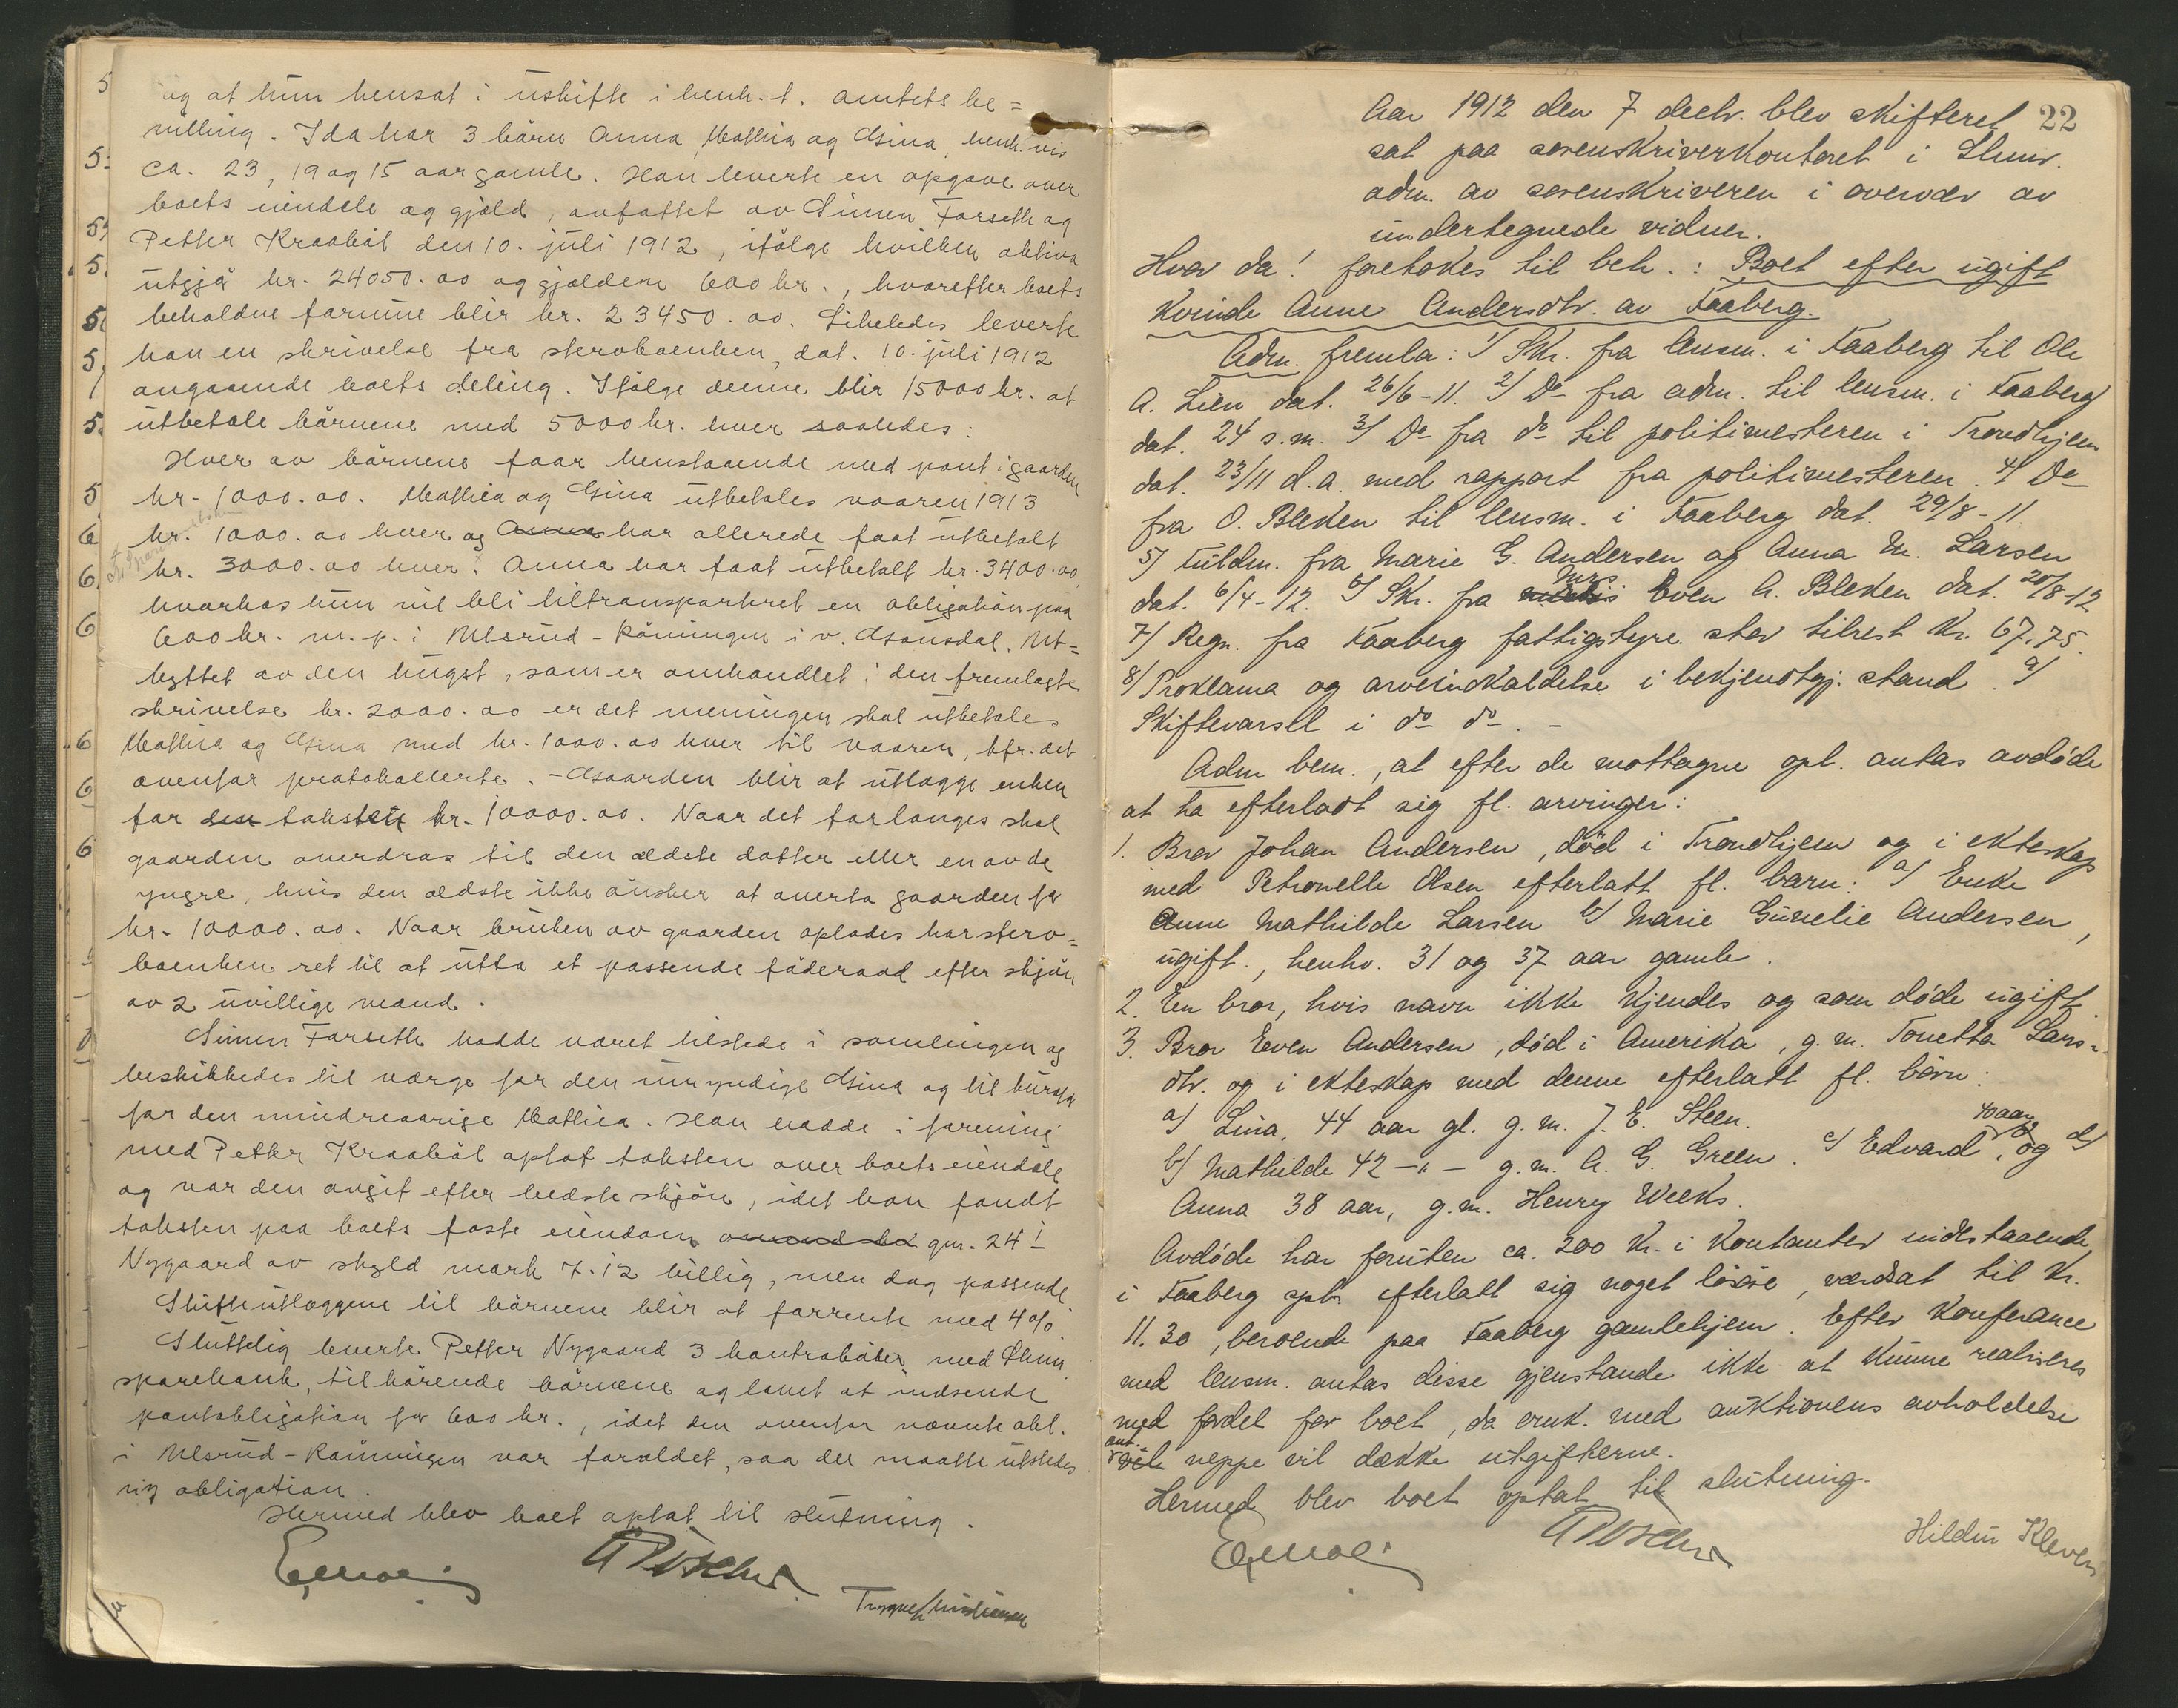 og at hun hensat i uskifte i henh. t. amtets be=
villing. Ida har 3 børn Anna, Mathea og Gina, henh.vis
ca. 23, 19 og 15 aar gamle. Han leverte en opgave over
boets eiendele og gjæld, avfattet av Simen Forseth og
Petter Kraabøl den 10. juli 1912, ifølge hvilken aktiva
utgjø kr. 24050.00 og gjælden 600 kr., hvorefter boets
beholdne formue blir kr. 23450.00. Likeledes leverte
han en skrivelse fra stervboenken, dat. 10. juli 1912
angaaende boets deling. Ifølge denne blir 15000 kr. at
utbetale børnene med 5000 kr. hver saaledes:
Hver av børnene faar henstaaende med pant i gaarden
kr. 1000.00. Mathea og Gina utbetales vaaren 1913
kr. 1000.00 hver og Anna har allerede faat utbetalt
kr. 3000.00 hver. Anna har faat utbetalt kr. 3400.00,
hvorhos hun vil bli tiltransportert en obligation paa
600 kr. m. p. i Ulsrud-Rønningen i v. Gausdal. Ut=
byttet av den hingst, som er omhandlet i den fremlagte
skrivelse kr. 2000.00 er det meningen skal utbetales
Mathea og Gina med kr. 1000.00 hver til vaaren, kfr. det
ovenfor protokollerte. - Gaarden blir at utlægge enken
for den taksten kr. 10000.00. Naar det forlanges skal
gaarden overdras til den ældste datter eller en av de
yngre, hvis den ældste ikke ønsker at overta gaarden for
kr. 10000.00. Naar bruken av gaarden oplades har sterv=
boenken ret til at utta et passende føderaad efter skjøn
av 2 uvillige mænd.
Simen Forseth hadde været tilstede i samlingen og
beskikkedes til værge for den umyndige Gina og til kurator
for den mindreaarige Mathea. Han hadde i forening
med Petter Kraabøl optat taksten over boets eiendele
og var den avgit efter bedste skjøn, idet han fandt
taksten paa boets faste eiendom gnr. 24 1
Nygaard av skyld mark 7.12 billig, men dog passende.
Skifteutlæggene til børnene blir at forrente med 4%.
Sluttelig leverte Petter Nygaard 3 kontrabøker med Lhmr
sparebank, tilhørende børnene og lovet at indsende
pantobligation for 600 kr., idet den ovenfor nævnte obl.
i Ulsrud-Rønningen var forældet, saa der maatte utstedes
ny obligation.
Hermed blev boet optat til slutning.
22
Aar 1912 den 7 decbr. blev skifteret
sat paa sorenskriverkontoret i Lhmr.
adm. av sorenskriveren i overvær av
undertegnede vidner.
Hvor da! foretokes til beh.: Boet efter ugift
Kvinde Anne Andersdtr. av Faaberg.
Adm. fremla: 1/ Skr. fra lensm. i Faaberg til Ole
A. Lien dat. 26/6-11. 2/ Do fra adm. til lensm. i Faaberg
dat. 24 s.m. 3/ Do fra do til politimesteren i Trondhjem
dat. 23/11 d.a. med rapport fra politimesteren. 4/ Do
fra O. Bleken til lensm. i Faaberg dat. 29/8-11.
5/ Fuldm. fra Marie G. Andersen og Anna M. Larsen
dat. 6/4-12. 6/ Skr. fra Mrs Even A. Bleken dat. 20/8-12
7/ Regn. fra Faaberg fattigstyre stor tilrest Kr. 67.75.
8/ Proklama og arveindkaldelse i bekjendtgj. stand. 9/
Skiftevarsel i do do. -
Adm bem., at efter de mottagne opl. antas avdøde
at ha efterladt sig fl. arvinger:
1. Bror Johan Andersen, død i Trondhjem og i ekteskap
med Petronelle Olsen efterlatt fl. barn: a/ Enke
Anne Mathilde Larsen b/ Marie Gunelie Andersen,
ugift., henhv. 31 og 37 aar gamle.
2. En bror, hvis navn ikke kjendes og som døde ugift.
3. Bror Even Andersen, død i Amerika, g. m. Tonetta Lars-
dtr. og i ekteskap med denne efterlatt fl. børn:
a/ Lina, 44 aar gl. g. m. J. E. Steen.
b/ Mathilde 42 -"- g.m. A. G. Green. c/ Edvard, 40 aar og d/
Anna 38 aar, g.m. Henry Weeks.
Avdøde har foruten ca. 200 Kr. i Kontanter indestaaende
i Faaberg spb. efterlatt sig noget løsøre, værdsat til Kr.
11.30, beroende paa Faaberg gamlehjem. Efter Konferance
med lensm. antas disse gjenstande ikke at kunne realiseres
med fordel for boet, da omk. med auktionens avholdelse
ant. neppe vil dække utgifterne.
Hermed blev boet optat til slutning.
Hildur Kleven